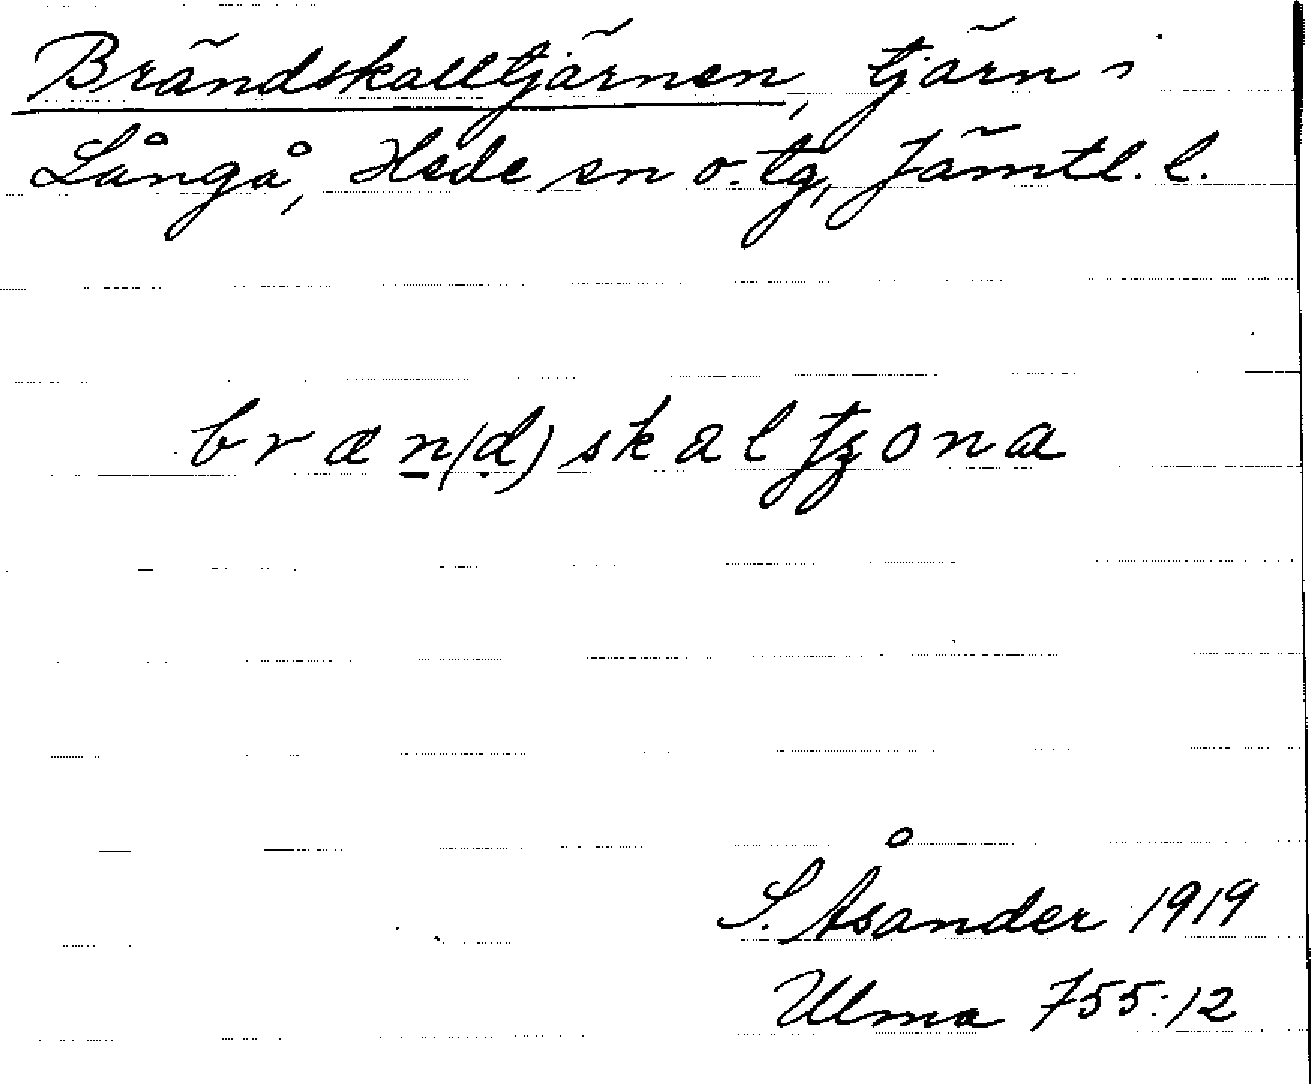 Brändskalltjärnen, tjärn i
Långå, Hede sn o. tg, Jämtl. l.
bræn(d)skaltʒona
S. Åsander 1919
Ulma 755:12